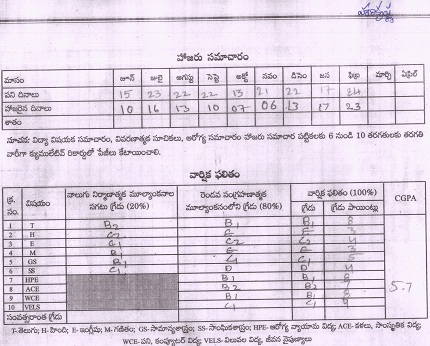 హాజరు సమాచారం
మాసం జూన్ జులై ఆగస్టు సెప్టె అక్టో నవం డిసెం జన ఫిబ్ర మార్చి ఏప్రిల్
పని దినాలు 15 23 22 22 13 21 22 17 24
హాజరైన దినాలు 10 16 13 10 07 06 13 17 23
శాతం
నూచన: విద్యా విషయక సమాచారం, వివరణాత్మక సూచికలు, ఆరోగ్య సమాచారం హాజరు సమాచార పట్టికలకు 6 నుండి 10 తరగతులకు తరగతి
వారీగా క్యుములేటివ్ రికార్డులో పేజీలు కేటాయించాలి.
వార్షిక ఫలితం
క్ర. సం. విషయం నాలుగు నిర్మాణాత్మక మూల్యాంకనాల సగటు గ్రేడు (20%) రెండవ సంగ్రహణాత్మక మూల్యాంకనంలోని గ్రేడు (80%) వార్షిక ఫలితం (100%) CGPA
గ్రేడు గ్రేడు పాయింట్లు
1 T B2 B1 B1 8
2 H C2 E E 3
3 E C1 C2 C2 4
4 M B1 E E 3
5 GS B1 C1 C1 5
6 SS C1 D D 4
7 HPE B1 B1
8 ACE B2 B2
9 WCE B1 B1 8
10 VELS C1 C1
5.7
సంవత్సరాంత గ్రేడు
T-తెలుగు; H-హిందీ; E-ఇంగ్లీషు; M-గణితం; GS-సామాన్యశాస్త్రం; SS-సాంఘికశాస్త్రం; HPE-ఆరోగ్య వ్యాయామ విద్య; ACE-కళలు, సాంస్కృతిక విద్య;
WCE-పని, కంప్యూటర్ విద్య; VELS-విలువల విద్య, జీవన నైపుణ్యాలు